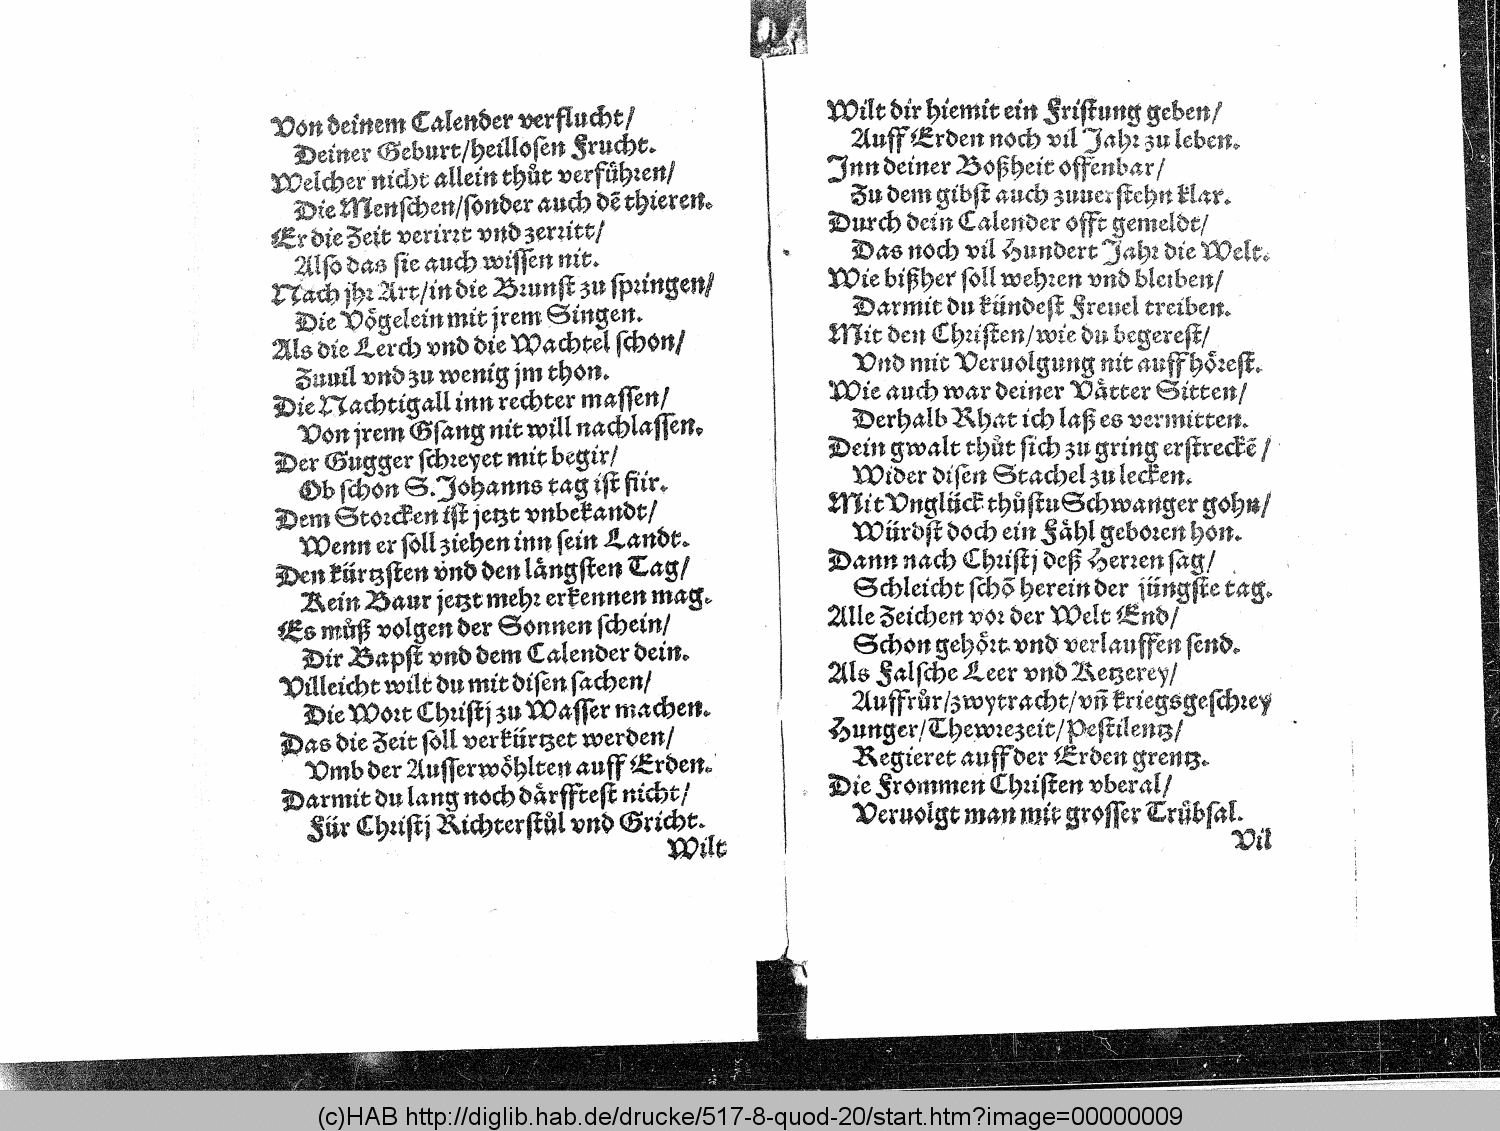 Von deinem Calender verflucht/
Deiner Geburt/heillosen Frucht.
Welcher nicht allein thůt verfůhren/
Die Menschen/sonder auch dē thieren.
Er die Zeit verirrt vnd zerritt/
Also das sie auch wissen nit.
Nach jhr Art/in die Brunst zu springen/
Die Vögelein mit jrem Singen.
Als die Lerch vnd die Wachtel schon/
Zuuil vnd zu wenig jm thon.
Die Nachtigall inn rechter massen/
Von jrem Gsang nit will nachlassen.
Der Gugger schreyet mit begir/
Ob schon S. Johanns tag ist für.
Dem Storcken ist jetzt vnbekandt/
Wenn er soll ziehen inn sein Landt.
Den kürtzsten vnd den längsten Tag/
Kein Baur jetzt mehr erkennen mag.
Es můß volgen der Sonnen schein/
Dir Bapst vnd dem Calender dein.
Villeicht wilt du mit disen sachen/
Die Wort Christj zu Wasser machen.
Das die Zeit soll verkürtzet werden/
Vmb der Ausserwöhlten auff Erden.
Darmit du lang noch därfftest nicht/
Für Christj Richterstůl vnd Gricht.
Wilt
Wilt dir hiemit ein Fristung geben/
Auff Erden noch vil Jahr zu leben.
Inn deiner Boßheit offenbar/
Zu dem gibst auch zuuerstehn klar.
Durch dein Calender offt gemeldt/
Das noch vil Hundert Jahr die Welt.
Wie bißher soll wehren vnd bleiben/
Darmit du kündest Freuel treiben.
Mit den Christen/wie du begerest/
Vnd mit Veruolgung nit auffhörest.
Wie auch war deiner Vätter Sitten/
Derhalb Rhat ich laß es vermitten.
Dein gwalt thůt sich zu gring erstreckē/
Wider disen Stachel zu lecken.
Mit Vnglück thůstu Schwanger gohn/
Würdst doch ein Fähl geboren hon.
Dann nach Christj deß Herren sag/
Schleicht schō herein der jüngste tag.
Alle Zeichen vor der Welt End/
Schon gehört vnd verlauffen send.
Als Falsche Leer vnd Ketzerey/
Auffrůr/zwytracht/vñ kriegsgeschrey
Hunger/Thewrezeit/Pestilentz/
Regieret auff der Erden grentz.
Die Frommen Christen vberal/
Veruolgt man mit grosser Trůbsal.
Vil
(c)HAB http://diglib.hab.de/drucke/517-8-quod-20/start.htm?image=00000009